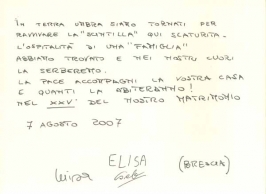 IN TERRA UMBRA SIAMO TORNATI PER
RAVVIVARE LA "SCINTILLA" QUI SCATURITA.
L'OSPITALITÀ DI UNA "FAMIGLIA"
ABBIAMO TROVATO E NEI NOSTRI CUORI
LA SERBEREMO.
LA PACE ACCOMPAGNI LA VOSTRA CASA
E QUANTI LA ABITERANNO!
NEL XXV° DEL NOSTRO MATRIMONIO
7 AGOSTO 2007
ELISA
Luisa Carlo (BRESCIA)